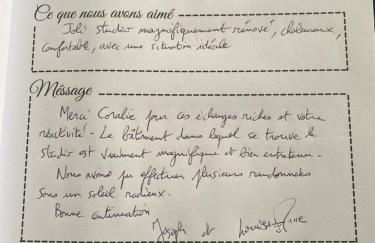 Ce que nous avons aimé
Joli studio magnifiquement rénové, chaleureux,
confortable, avec une situation idéale
Message
Merci Coralie pour ces échanges riches et votre
réactivité - Le bâtiment dans lequel se trouve le
studio est vraiment magnifique et bien entretenu.
Nous avons pu effectuer plusieurs randonnées
sous un soleil radieux.
Bonne continuation
Joseph et